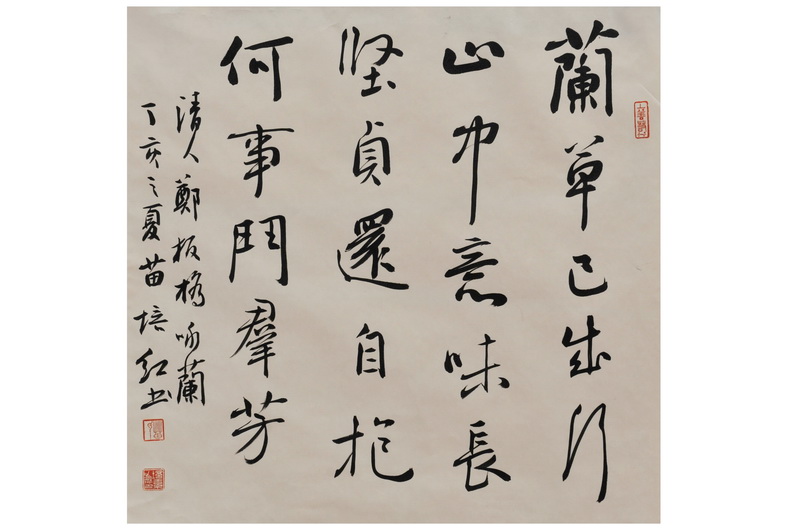 蘭草已成行
山中意味長
堅貞還自抱
何事鬥羣芳
清人鄭板橋咏蘭
丁亥之夏苗培紅书